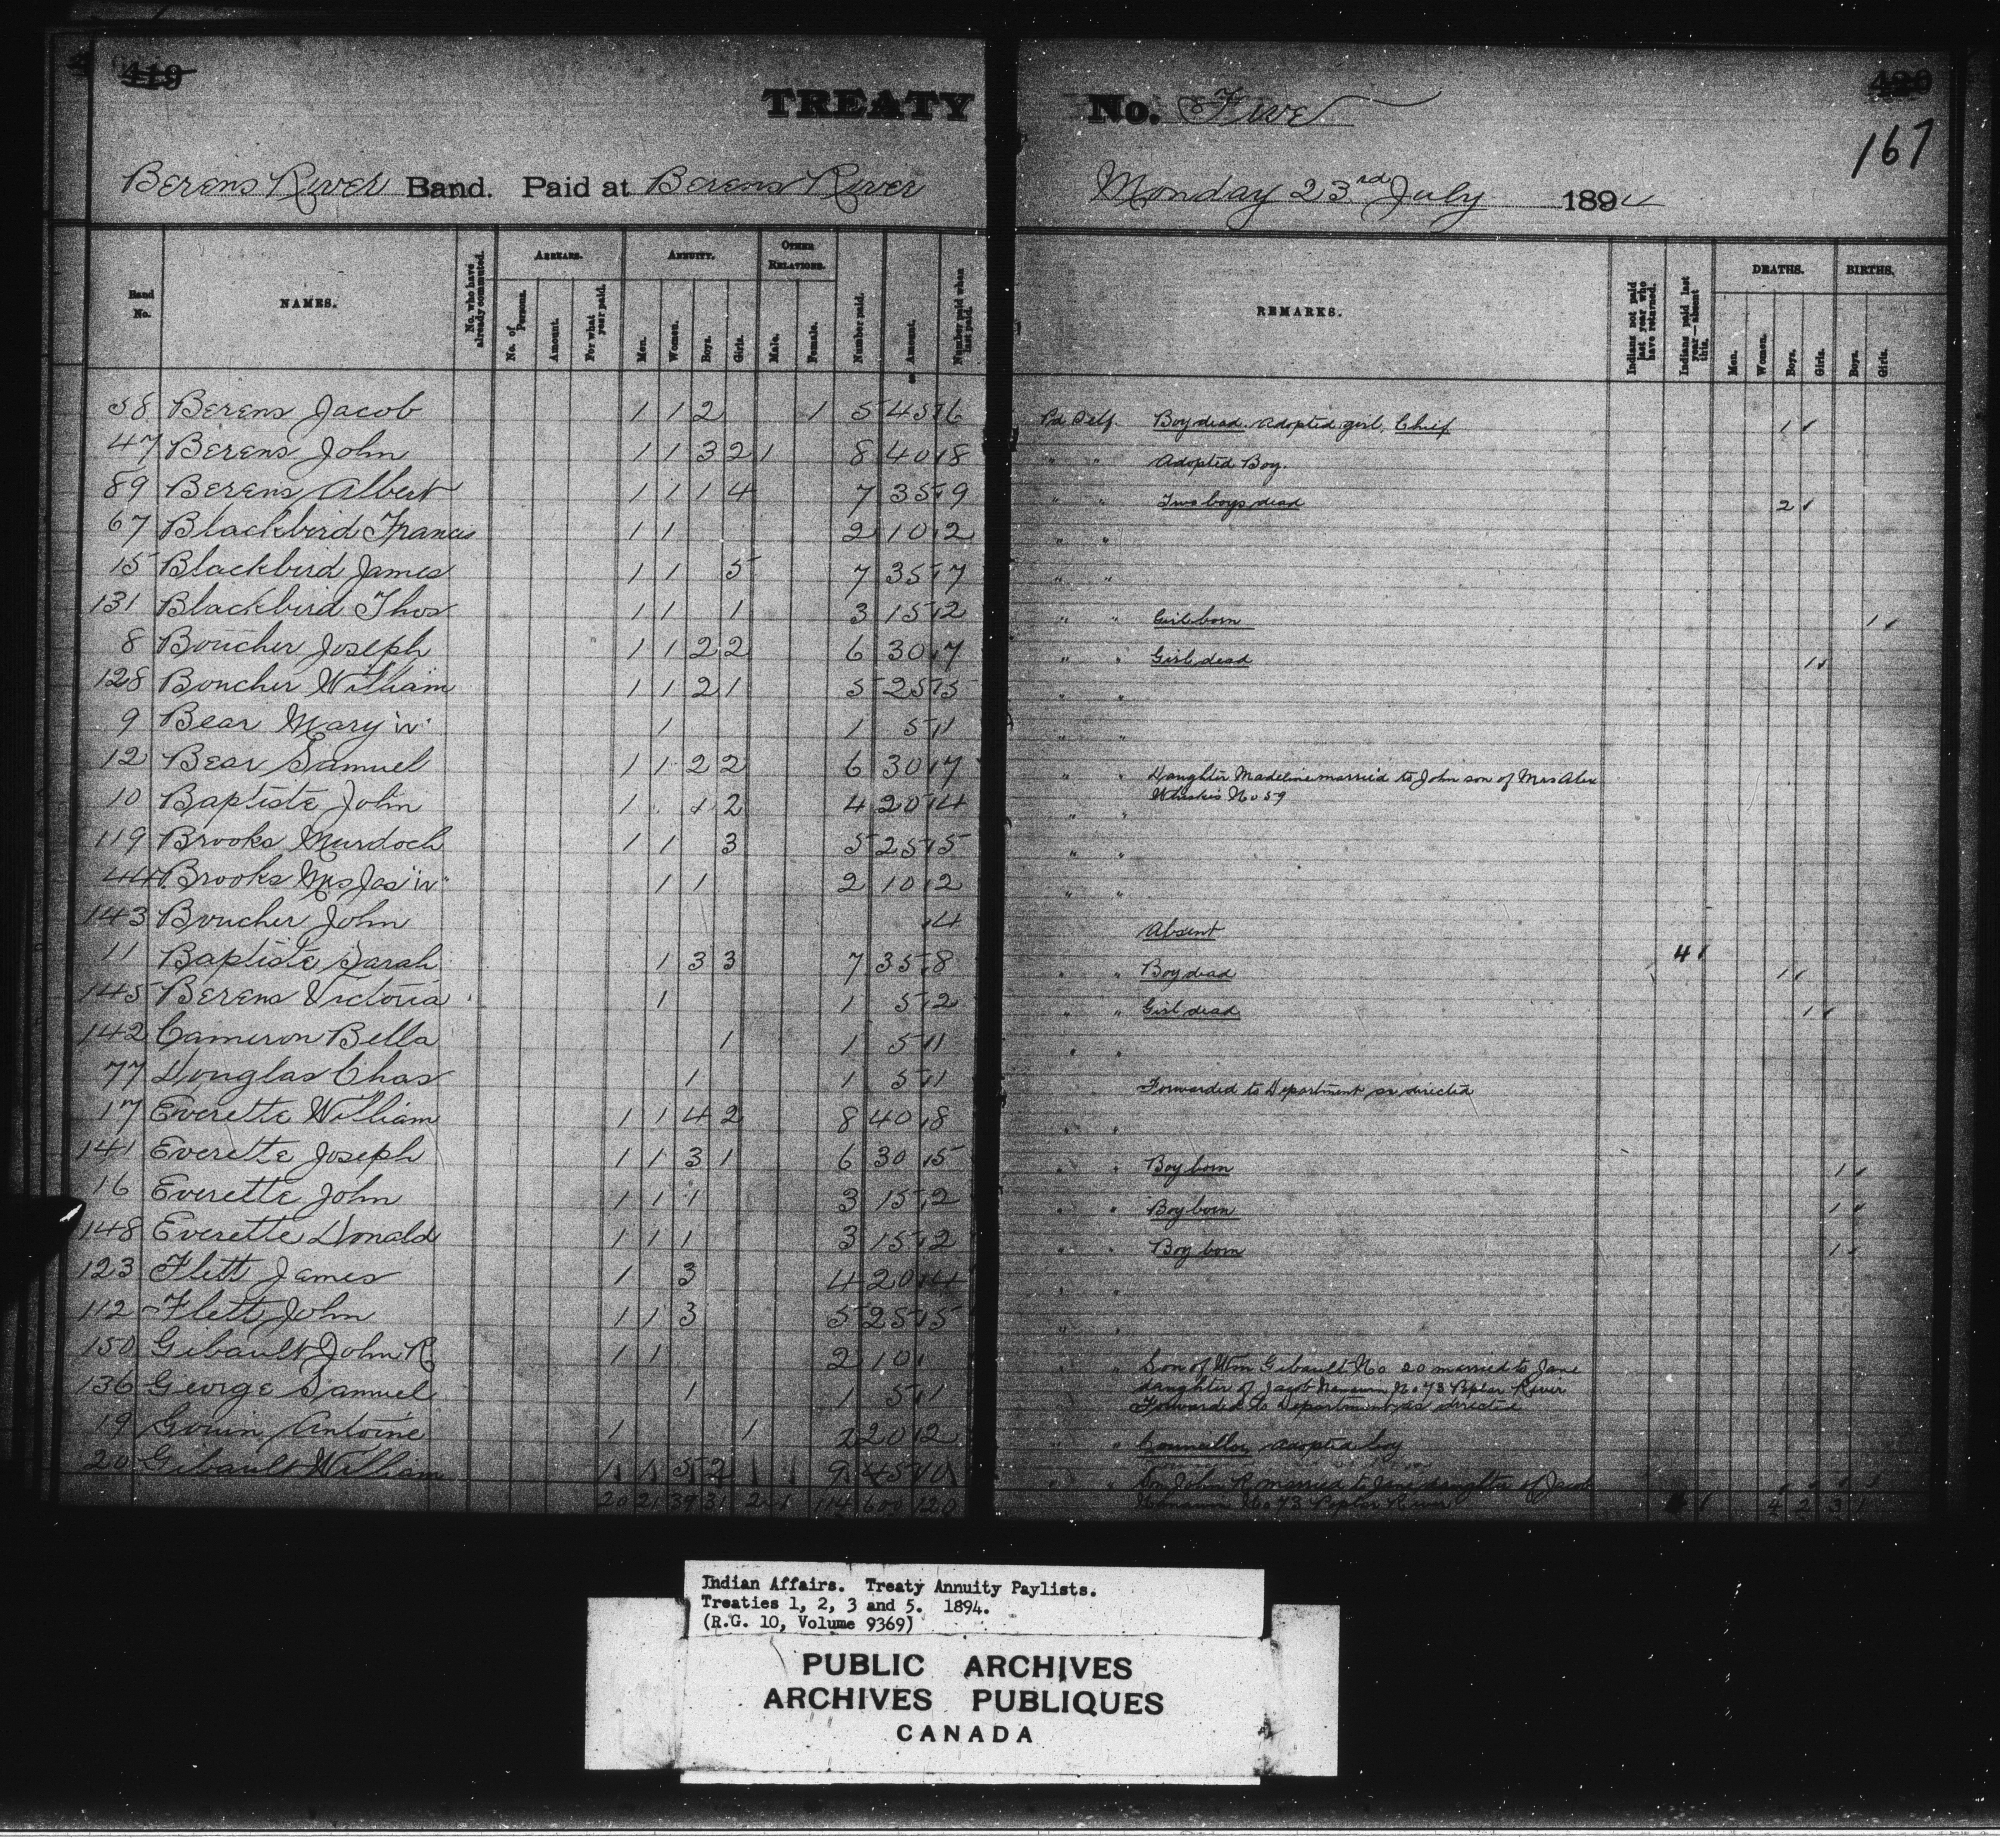 419
TREATY No. Five
420
167
Berens River Band. Paid at Berens River Monday 23rd July 1894
Band No.
NAMES.
No. who have already commuted.
ARREARS.
No. of Persons.
Amount.
For what year paid.
ANNUITY.
Men.
Women.
Boys.
Girls.
OTHER RELATIONS.
Male.
Female.
Number paid.
Amount.
Number paid when last paid.
REMARKS.
Indians not paid last year who have returned.
Indians paid last year—absent this.
DEATHS.
Men.
Women.
Boys.
Girls.
BIRTHS.
Boys.
Girls.
58 Berens Jacob 1 1 2 1 5 45 6 Pd Self. Boy dead. Adopted girl, Chief 1
47 Berens John 1 1 3 2 1 8 40 8 " " Adopted Boy.
89 Berens Albert 1 1 1 4 7 35 9 " " Two boys dead 2
67 Blackbird Francis 1 1 2 10 2 " "
15 Blackbird James 1 1 5 7 35 7 " "
131 Blackbird Thos 1 1 1 3 15 2 " " Girl born 1
8 Boucher Joseph 1 1 2 2 6 30 7 " " Girl dead 1
128 Boucher William 1 1 2 1 5 25 5 " "
9 Bear Mary "W" 1 1 5 1 " "
12 Bear Samuel 1 1 2 2 6 30 7 " " Daughter Madeline married to John son of Mrs Alex
Whiskis No 59
10 Baptiste John 1 1 2 4 20 4 " "
119 Brooks Murdoch 1 1 3 5 25 5 " "
44 Brooks Mrs Jas "W" 1 1 2 10 2 " "
143 Boucher John 4 Absent 4
11 Baptiste Sarah 1 3 3 7 35 8 " " Boy dead 1
145 Berens Victoria 1 1 5 2 " " Girl dead 1
142 Cameron Bella 1 1 5 1 " "
77 Douglas Chas 1 1 5 1 Forwarded to Department as directed
17 Everette William 1 1 4 2 8 40 8 " "
141 Everette Joseph 1 1 3 1 6 30 5 " " Boy born 1
16 Everette John 1 1 1 3 15 2 " " Boy born 1
148 Everette Donald 1 1 1 3 15 2 " " Boy born 1
123 Flett James 1 3 4 20 4 " "
112 Flett John 1 1 3 5 25 5 " "
150 Gibault John R 1 1 2 10 " " Son of Wm Gibault No 20 married to Jane
daughter of Jacob No 73 Poplar River
136 George Samuel 1 1 5 1 Forwarded to Department as directed
19 Gouin Antoine 1 1 2 20 2 " " Councillor, adopted boy
20 Gibault William 1 1 5 2 9 45 10 " " Son John R married to Jane daughter of Jacob
No 73 Poplar River
20 21 39 31 2 1 114 600 120 4 2 3 1
Indian Affairs. Treaty Annuity Paylists.
Treaties 1, 2, 3 and 5. 1894.
(R.G. 10, Volume 9369)
PUBLIC ARCHIVES
ARCHIVES PUBLIQUES
CANADA